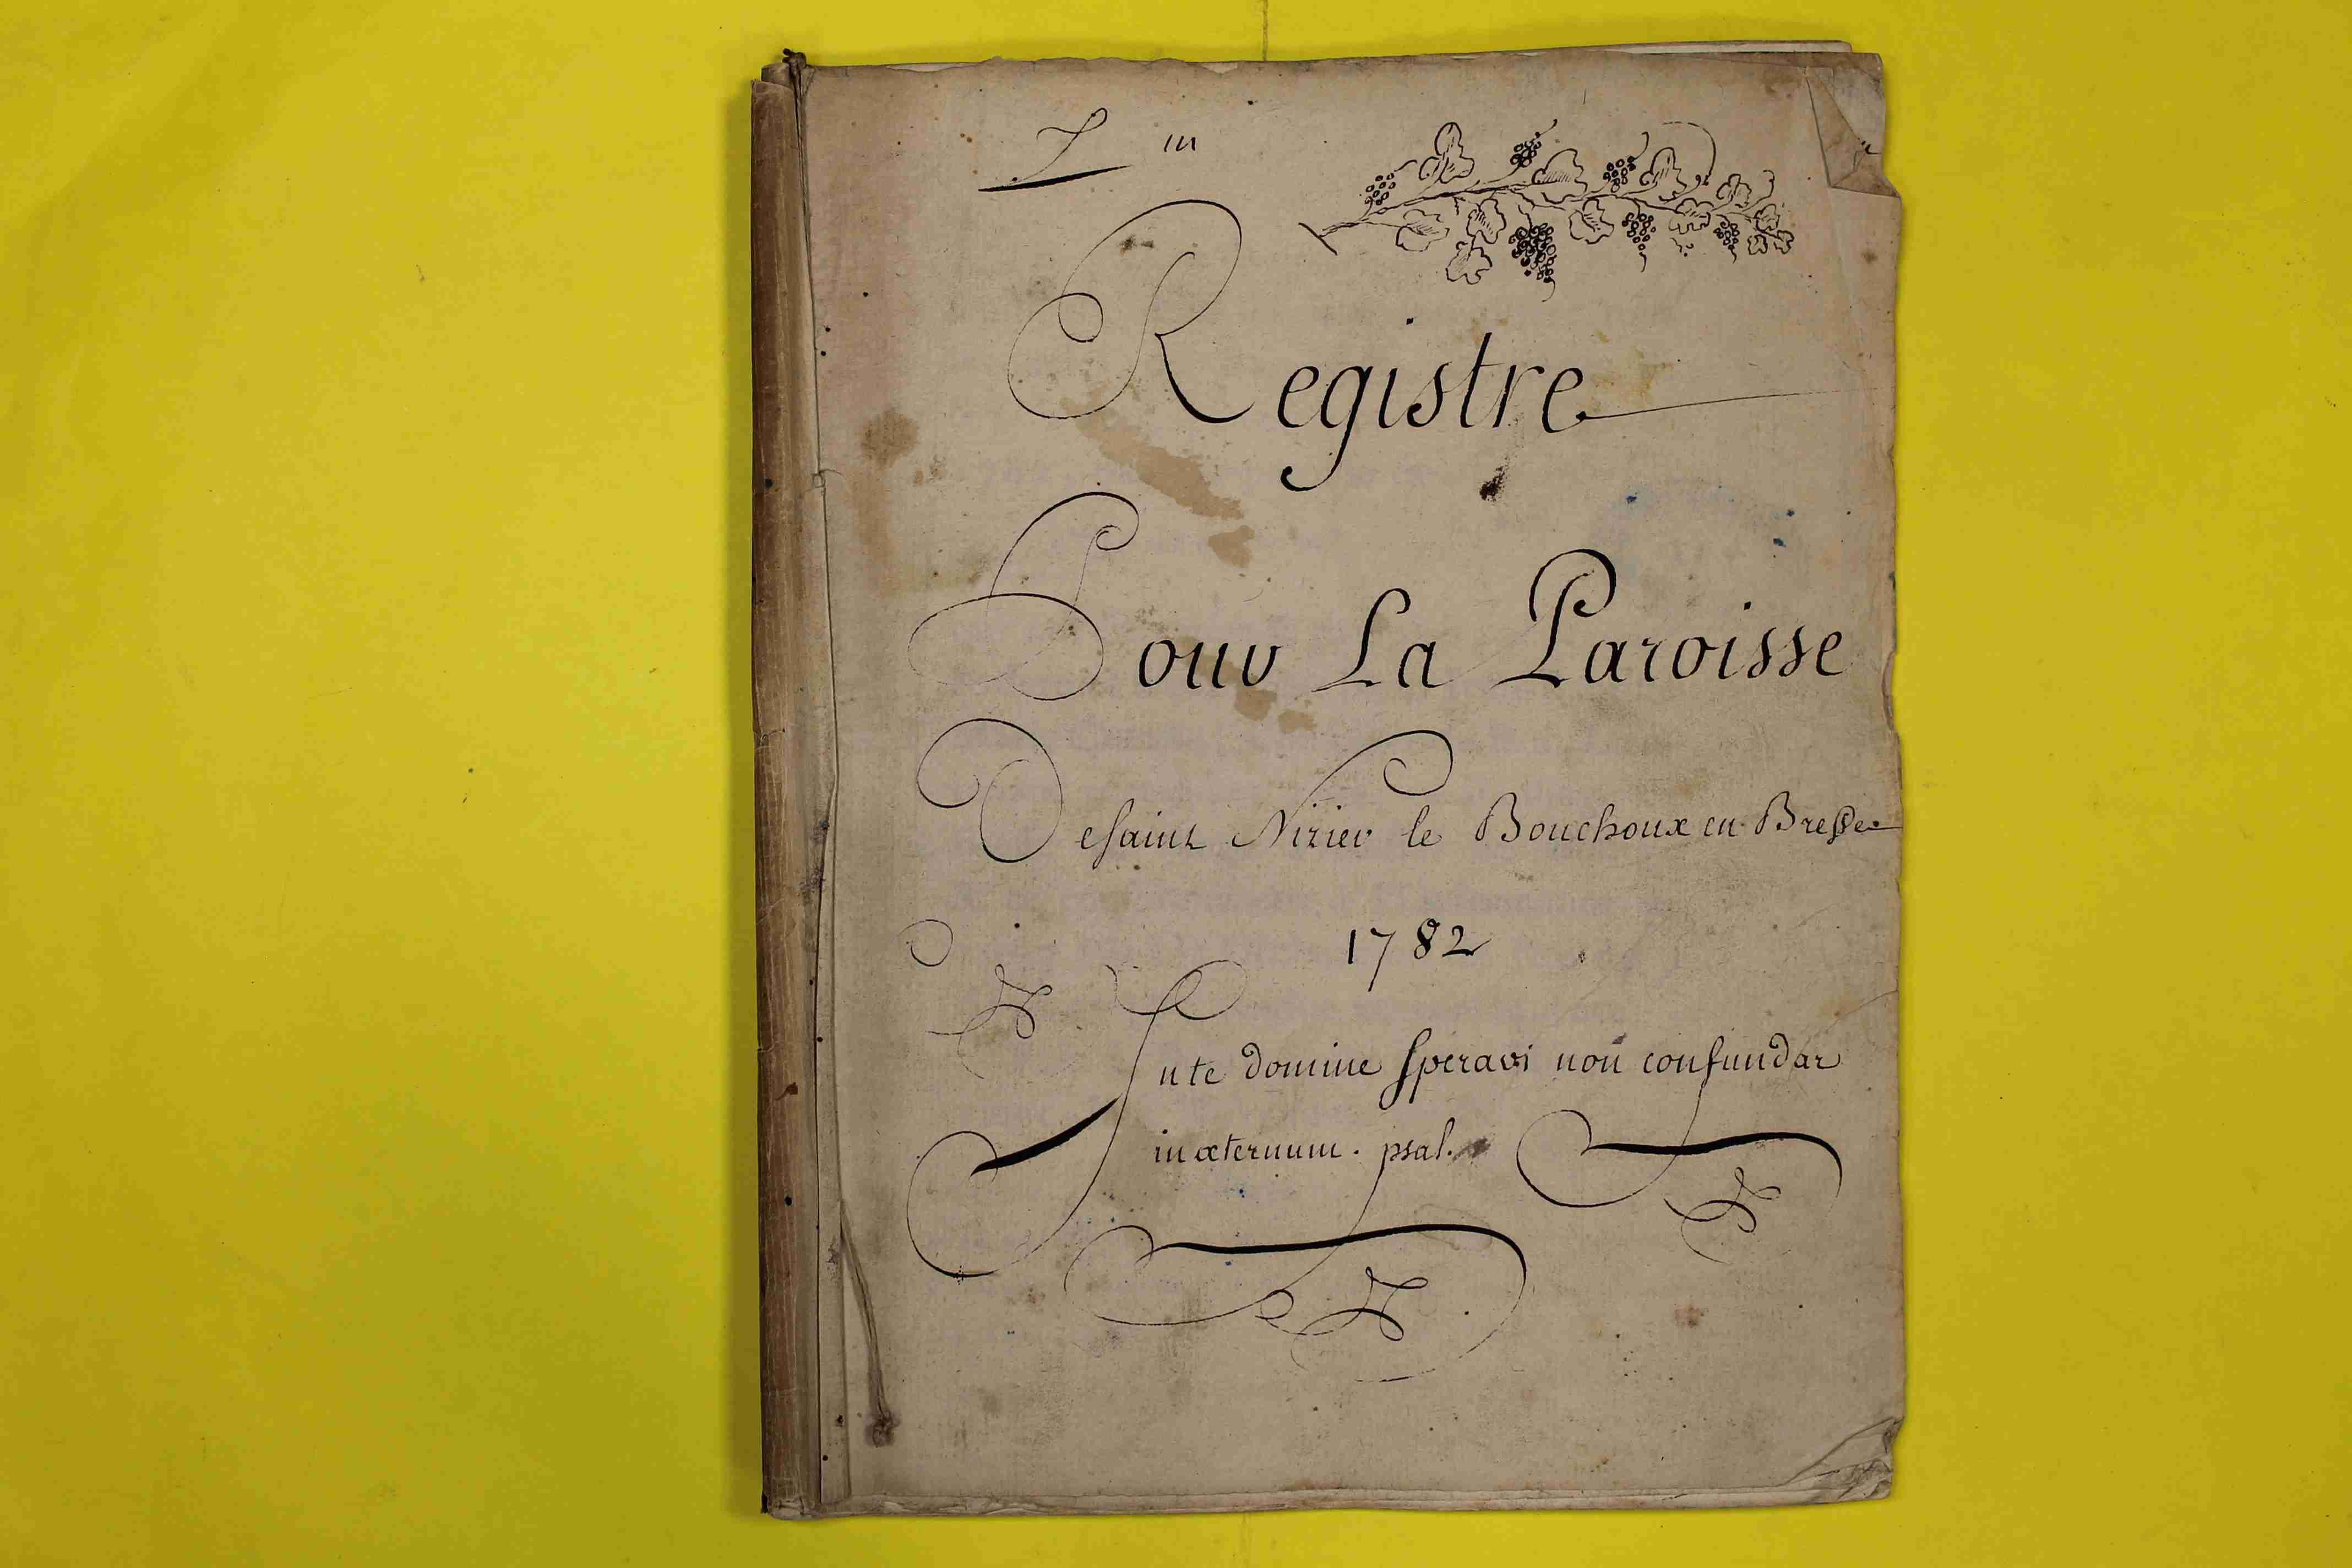 Registre
Pour La Paroisse
Desaint Nizier le Bouchoux en Bresse
1782
Inte domine speravi non confundar
in æternum. psal.